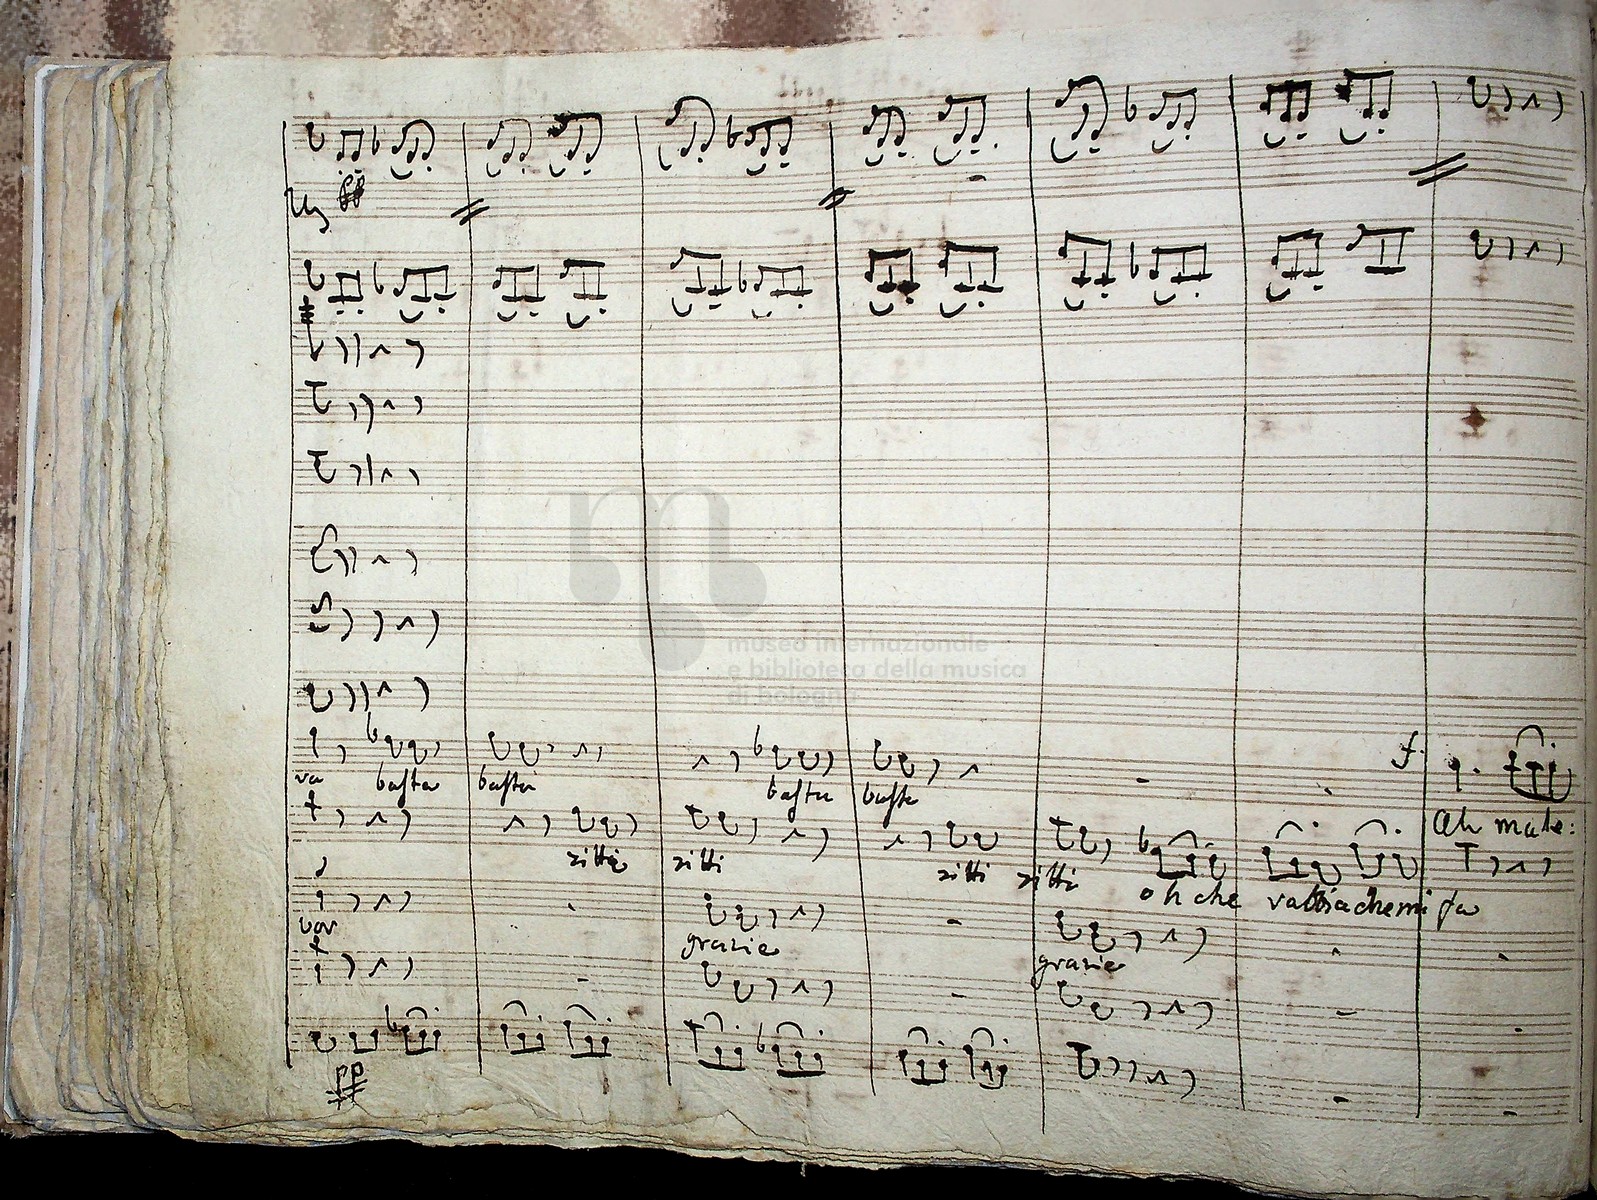 pp
f.
va basta basta basta basta
Ah male:
zitti zitti zitti zitti oh che rabbia che mi fa
grazie grazie
pp
museo internazionale
e biblioteca della musica
di bologna